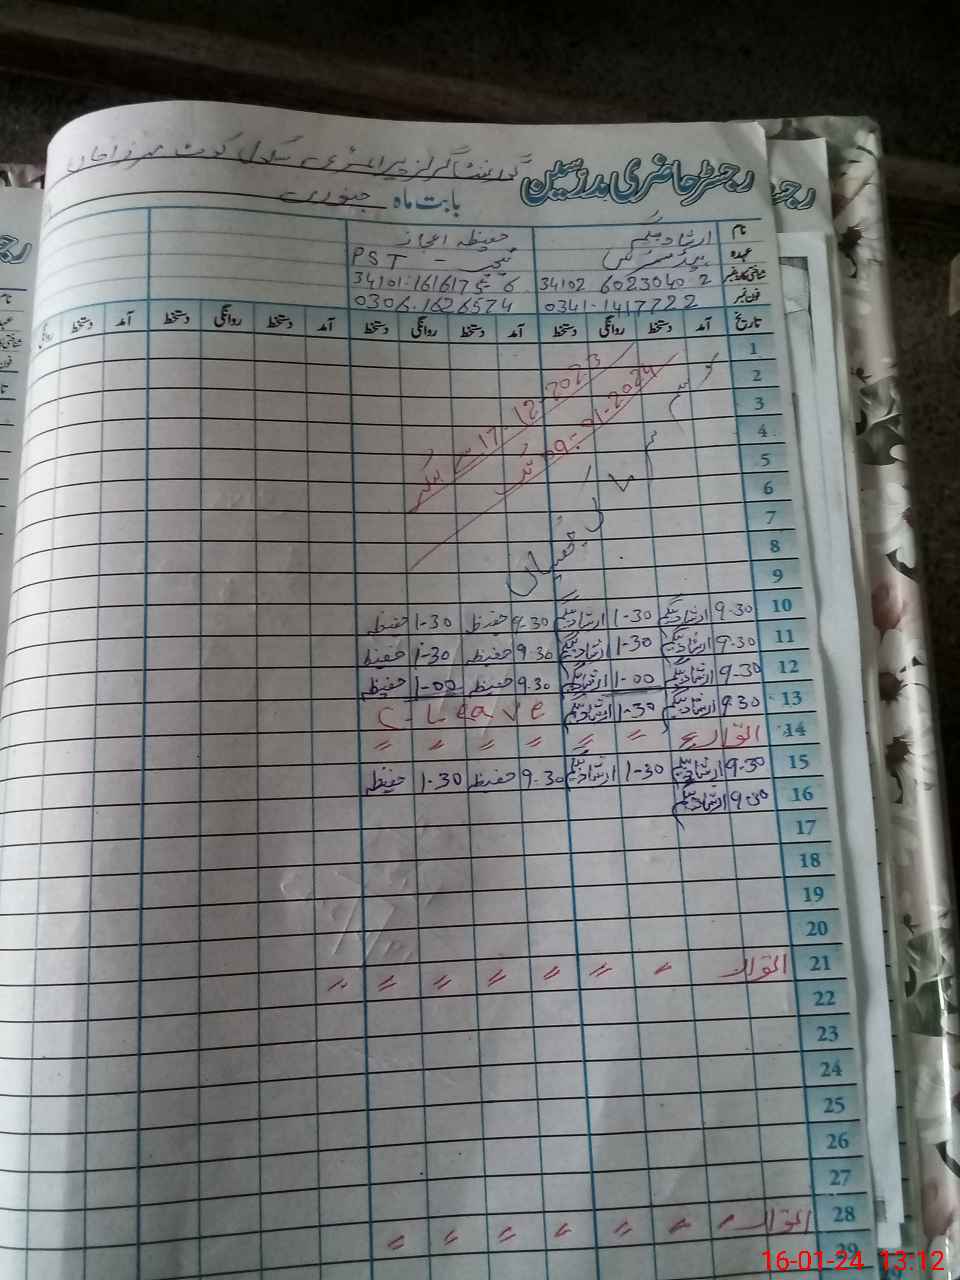 رجسٹر حاضری مدرسین گورنمنٹ گرلز پرائمری سکول کوٹ
بابت ماہ جنوری
نام ارشاد بیگم حفیظہ اعجاز
عہدہ ہیڈ مسٹریس ٹیچر - PST
شناختی کارڈ نمبر 34102 6023040 2 34101-1616175-6
فون نمبر 0341-1417722 0306-1626574
تاریخ آمد دستخط روانگی دستخط آمد دستخط روانگی دستخط آمد دستخط روانگی دستخط آمد دستخط روانگی
1
2
3
4
5
6
7
8
9
موسم سرما کی چھٹیاں
17-12-2023 سے لیکر
09-01-2024 تک
10 9-30 ارشاد بیگم 1-30 ارشاد بیگم 9.30 حفیظہ 1-30 حفیظہ
11 9.30 ارشاد بیگم 1-30 ارشاد بیگم 9.30 حفیظہ 1-30 حفیظہ
12 9-30 ارشاد بیگم 1-00 ارشاد بیگم 9.30 حفیظہ 1-00 حفیظہ
13 9 30 ارشاد بیگم 1-30 ارشاد بیگم C-Leave
14 اتوار " " " " " "
15 9-30 ارشاد بیگم 1-30 ارشاد بیگم 9.30 حفیظہ 1.30 حفیظہ
16 9-30 ارشاد بیگم
17
18
19
20
21 اتوار " " " " " " "
22
23
24
25
26
27
28 اتوار " " " " " "
29
16-01-24 13:12